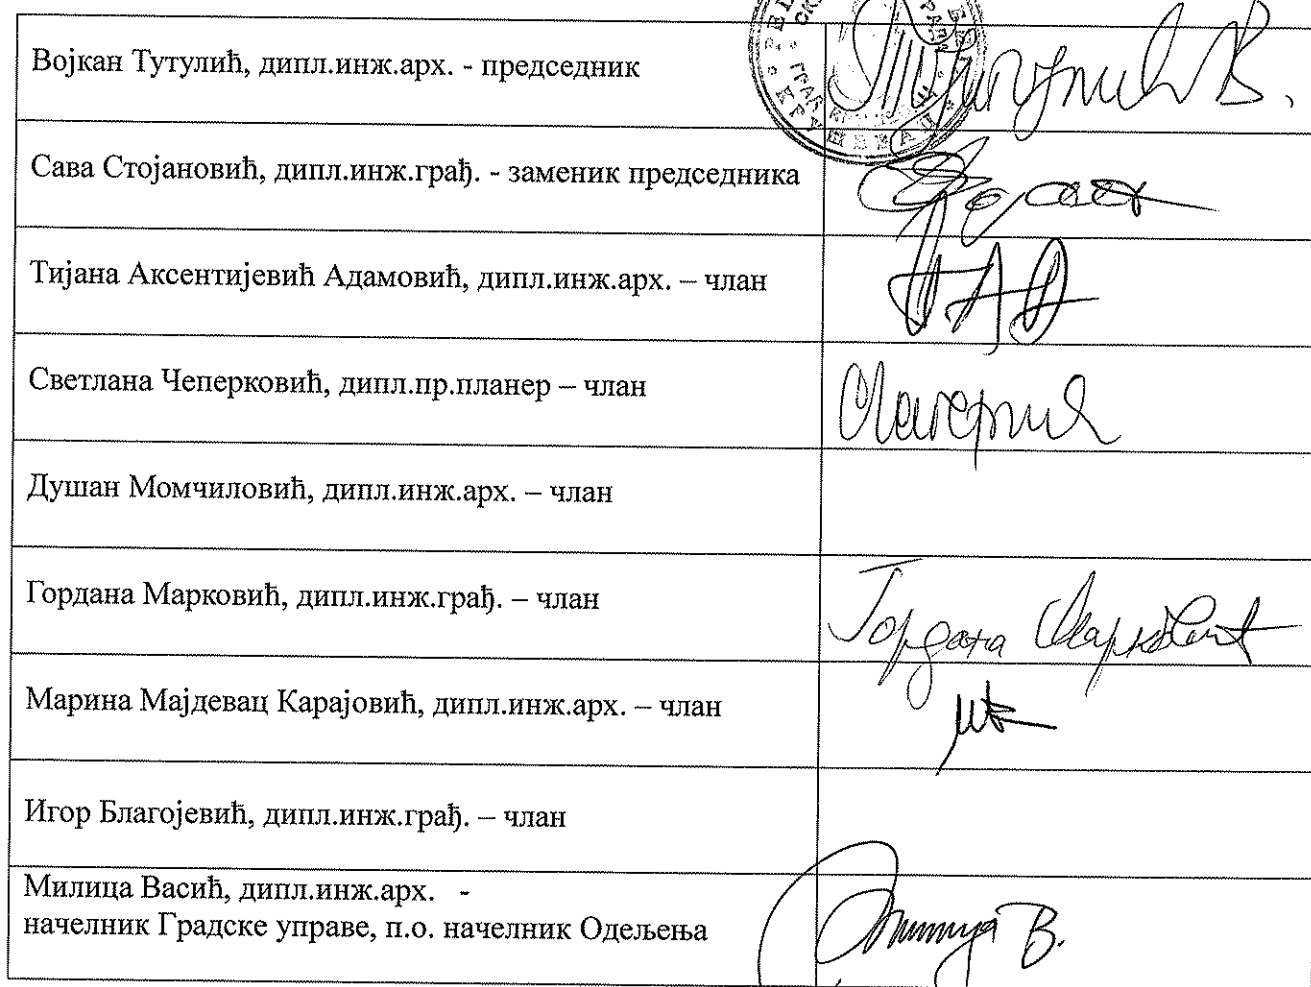 Војкан Тутулић, дипл.инж.арх. - председник
Сава Стојановић, дипл.инж.грађ. - заменик председника
Тијана Аксентијевић Адамовић, дипл.инж.арх. – члан
Светлана Чеперковић, дипл.пр.планер – члан
Душан Момчиловић, дипл.инж.арх. – члан
Гордана Марковић, дипл.инж.грађ. – члан
Гордана Марковић
Марина Мајдевац Карајовић, дипл.инж.арх. – члан
Игор Благојевић, дипл.инж.грађ. – члан
Милица Васић, дипл.инж.арх. -
начелник Градске управе, п.о. начелник Одељења
КРУШЕВАЦ